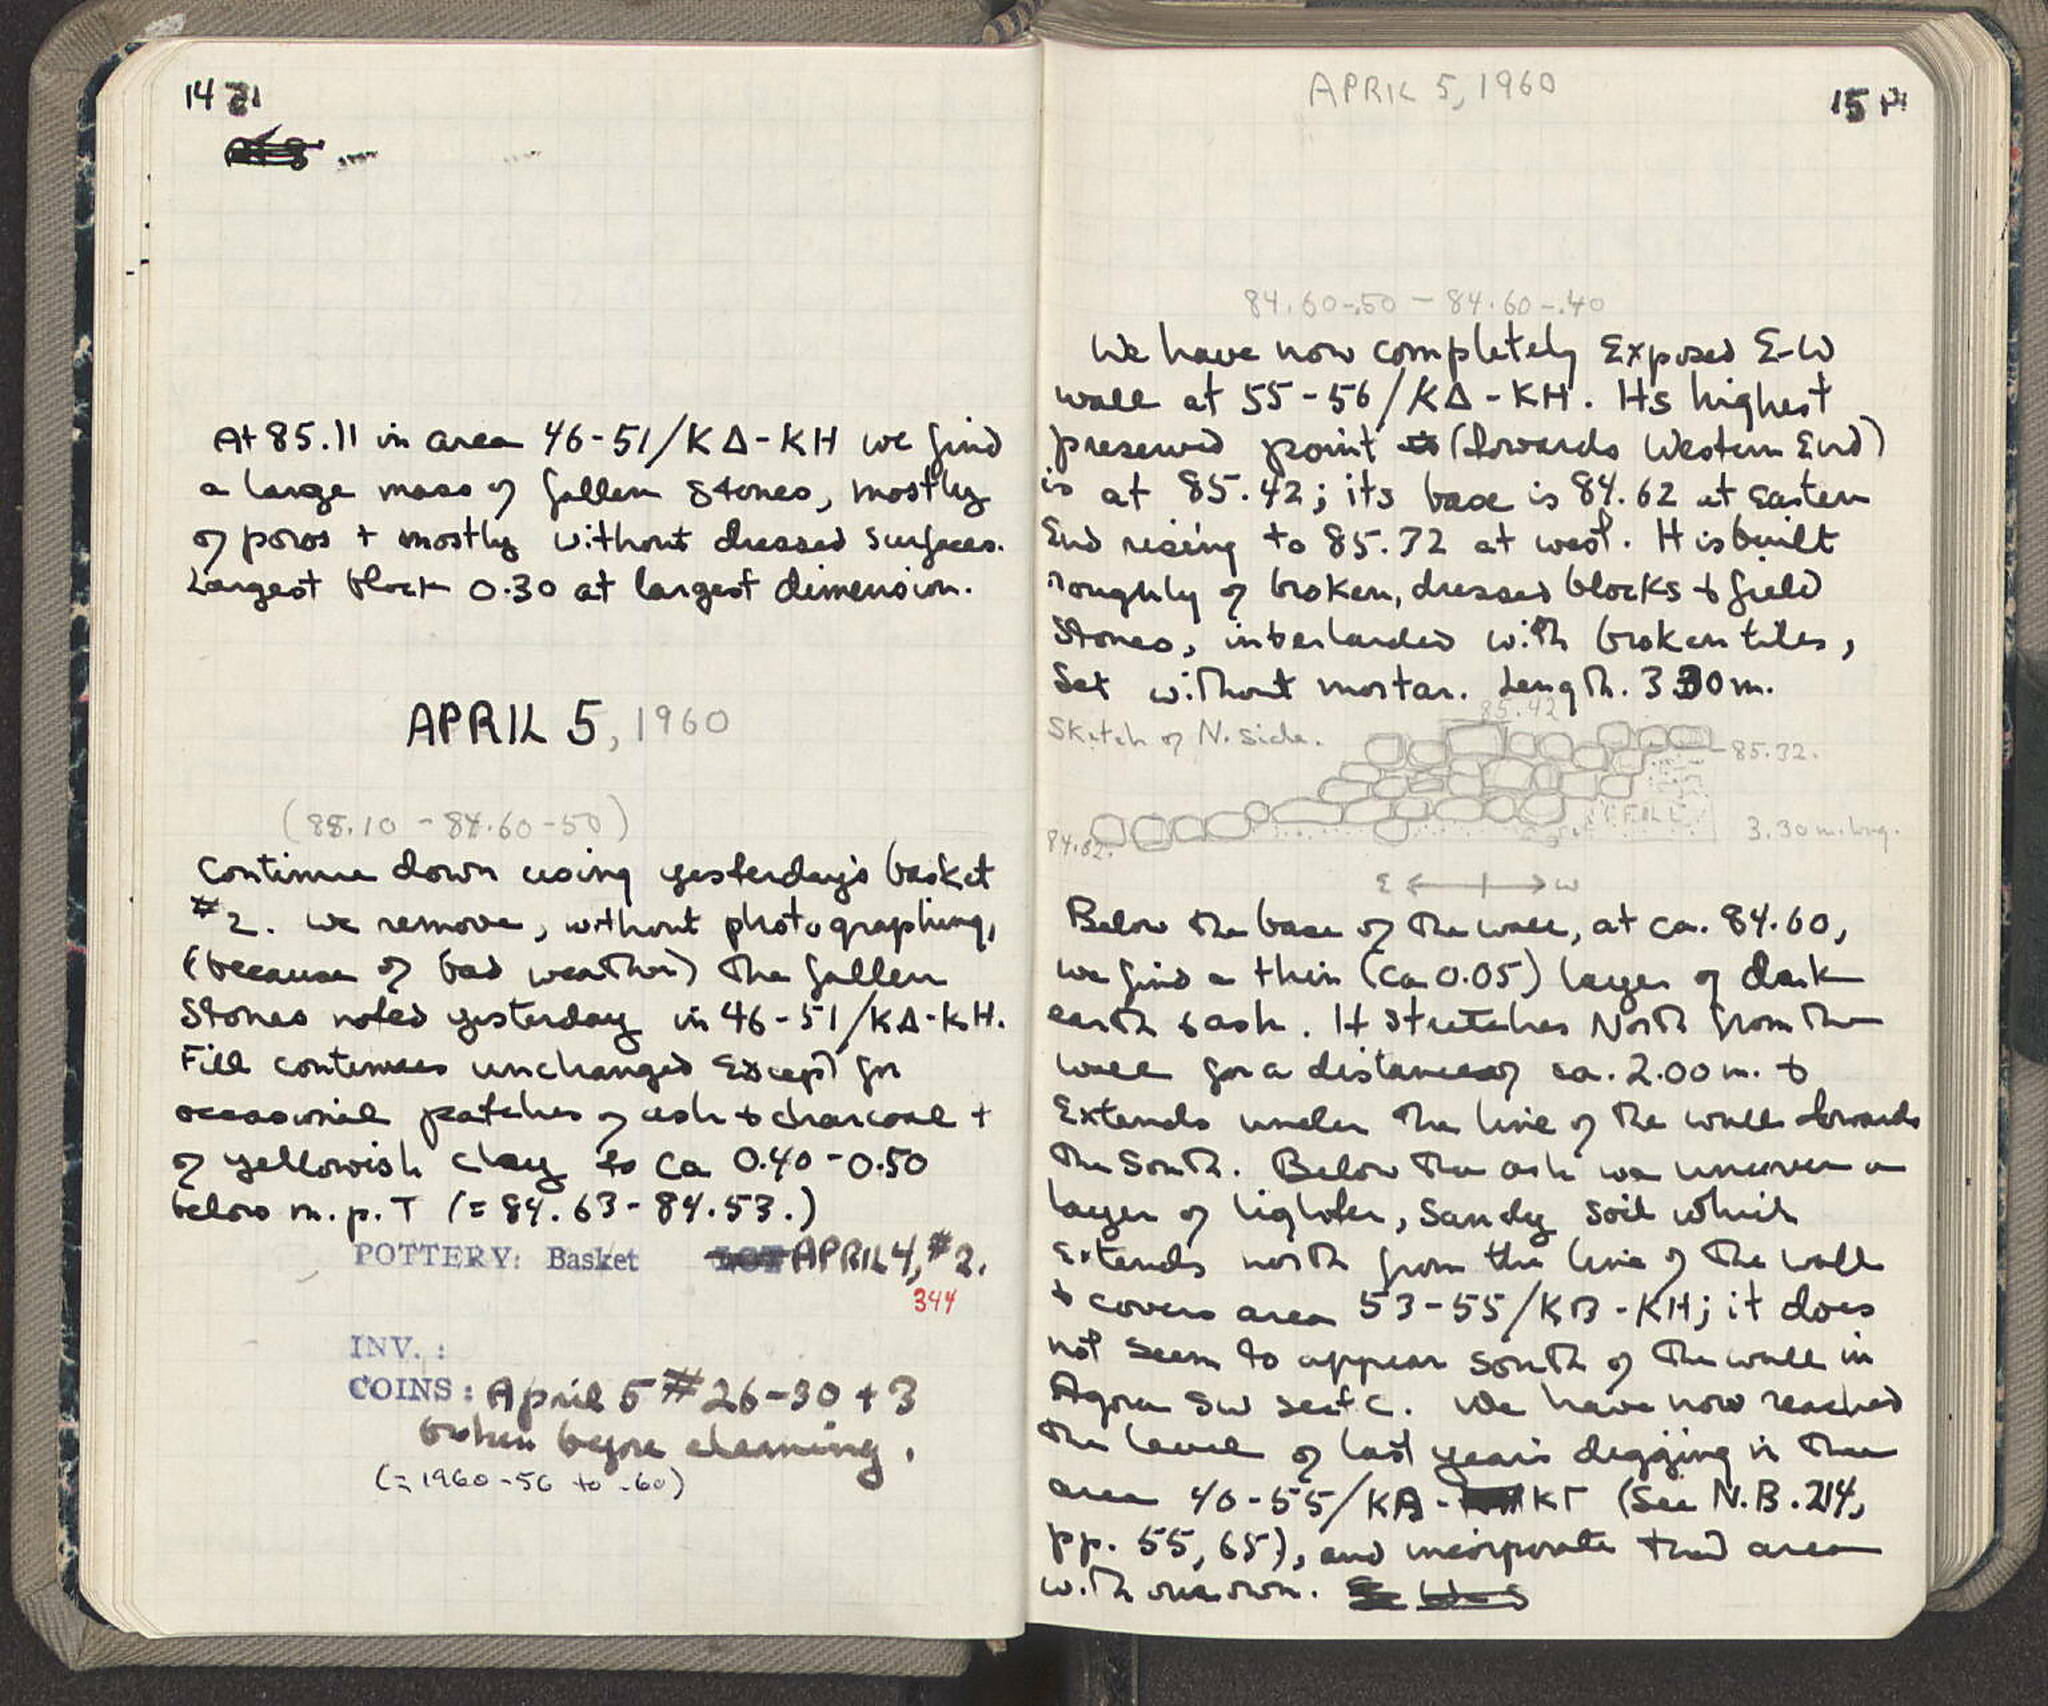 14
At 85.11 in area 46-51/ΚΔ-ΚΗ we find
a large mass of fallen stones, mostly
of poros + mostly without dressed surfaces.
Largest block 0.30 at largest dimension.
APRIL 5, 1960
(85.10 - 84.60-50)
Continue down using yesterday's basket
#2. We remove, without photographing,
(because of bad weather) the fallen
stones noted yesterday in 46-51/ΚΔ-ΚΗ.
Fill continues unchanged except for
occasional patches of ash & charcoal +
of yellowish clay to ca 0.40-0.50
below m.p. T (= 84.63-84.53.)
POTTERY: Basket LOT APRIL 4, #2.
344
INV. :
COINS: April 5 #26-30 + 3
broken before cleaning.
(= 1960-56 to -60)
APRIL 5, 1960
15
84.60-.50 - 84.60-.40
We have now completely exposed E-W
wall at 55-56/ΚΔ-ΚΗ. Its highest
preserved point (towards Western End)
is at 85.42; its base is 84.62 at eastern
End rising to 85.32 at west. It is built
roughly of broken, dressed blocks & field
stones, interlarded with broken tiles,
set without mortar. Length. 3.30 m.
Sketch of N. side.
85.42
85.32.
FILL
84.62.
3.30 m. long.
E ←|→ W
Below the base of the wall, at ca. 84.60,
we find a thin (ca 0.05) layer of dark
earth & ash. It stretches North from the
wall for a distance of ca. 2.00 m. &
Extends under the line of the wall towards
the South. Below the ash we uncover a
layer of lighter, sandy soil which
extends north from the line of the wall
& covers area 53-55/ΚΒ-ΚΗ; it does
not seem to appear south of the wall in
Agora SW sect C. We have now reached
the level of last year's digging in the
area 40-55/ΚΑ-ΚΓ (see N.B. 214,
pp. 55, 65), and incorporate that area
with our own.